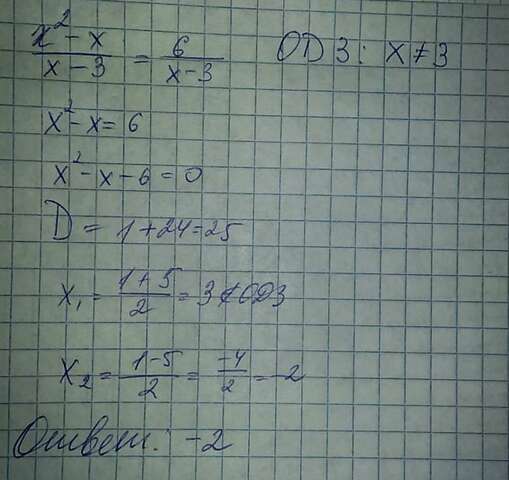 (x² - x)/(x - 3) = 6/(x - 3)   ОДЗ: x ≠ 3
x² - x = 6
x² - x - 6 = 0
D = 1 + 24 = 25
x₁ = (1 + 5)/2 = 3 ∉ ОДЗ
x₂ = (1 - 5)/2 = -4/2 = -2
Ответ: -2